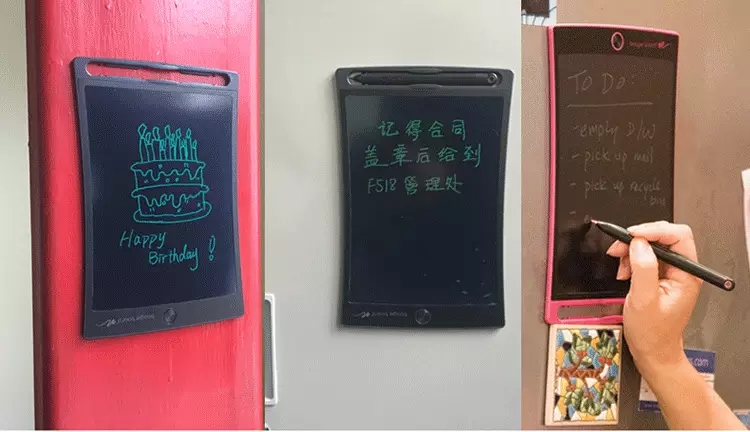 Happy
Birthday!
记得合同
盖章后给到
F518管理处
TO DO:
-empty D/W
-pick up mail
-pick up recycle
bin
-